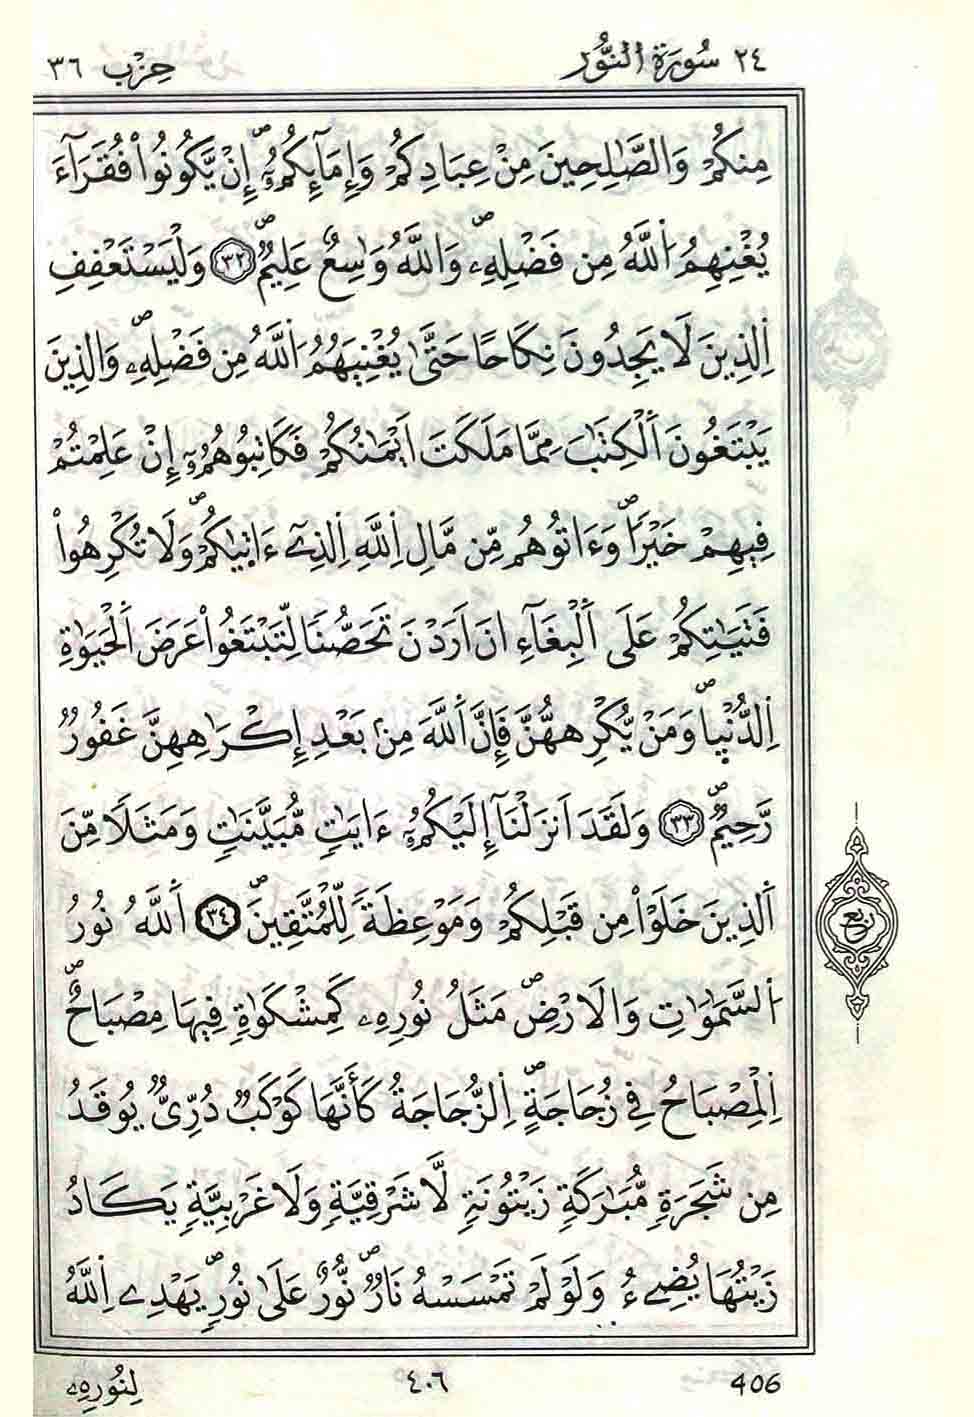 ٢٤ سُورَةُ النُّورِ حِزْب ٣٦
مِنكُمْ وَالصَّٰلِحِينَ مِنْ عِبَادِكُمْ وَإِمَآئِكُمُۥٓۖ إِنْ يَّكُونُواْ فُقَرَآءَ
يُغْنِهِمُ اُللَّهُ مِن فَضْلِهِۦۖ وَاللَّهُ وَٰسِعٌ عَلِيمٌۖ ٣٢ وَلْيَسْتَعْفِفِ
اِلذِينَ لَا يَجِدُونَ نِكَاحًا حَتَّىٰ يُغْنِيَهُمُ اُللَّهُ مِن فَضْلِهِۦۖ وَالذِينَ
يَبْتَغُونَ اَلْكِتَٰبَ مِمَّا مَلَكَتَ اَيْمَٰنُكُمْ فَكَاتِبُوهُمُۥٓ إِنْ عَلِمْتُمْ
فِيهِمْ خَيْراًۖ وَءَاتُوهُم مِّن مَّالِ اِللَّهِ اِلذِےٓ ءَاتٜيٰكُمْۖ وَلَا تُكْرِهُواْ
فَتَيَٰتِكُمْ عَلَى اَلْبِغَآءِ انَ اَرَدْنَ تَحَصُّنا لِّتَبْتَغُواْ عَرَضَ اَلْحَيَوٰةِ
اِلدُّنْيٜاۖ وَمَنْ يُّكْرِههُّنَّ فَإِنَّ اَللَّهَ مِنۢ بَعْدِ إِكْرَٰهِهِنَّ غَفُورٌ
رَّحِيمٌۖ ٣٣ وَلَقَدَ اَنزَلْنَآ إِلَيْكُمُۥٓ ءَايَٰتٖ مُّبَيَّنَٰتٖ وَمَثَلًا مِّنَ
اَلذِينَ خَلَوْاْ مِن قَبْلِكُمْ وَمَوْعِظَةً لِّلْمُتَّقِينَۖ ٣٤ اَللَّهُ نُورُ
اُلسَّمَٰوَٰتِ وَالَارْضِۖ مَثَلُ نُورِهِۦ كَمِشْكَوٰةٖ فِيهَا مِصْبَاحٌۖ
اِلْمِصْبَاحُ فِے زُجَاجَةٍۖ اِلزُّجَاجَةُ كَأَنَّهَا كَوْكَبٌ دُرِّيٌّ يُوقَدُ
مِن شَجَرَةٖ مُّبَٰرَكَةٖ زَيْتُونَةٖ لَّا شَرْقِيَّةٖ وَلَا غَرْبِيَّةٖ يَكَادُ
زَيْتُهَا يُضِےٓءُ وَلَوْ لَمْ تَمْسَسْهُ نَارٌۖ نُّورٌ عَلَىٰ نُورٖۖ يَهْدِے اِللَّهُ
ربع
لِنُورِهِۦ ٤٠٦ 406